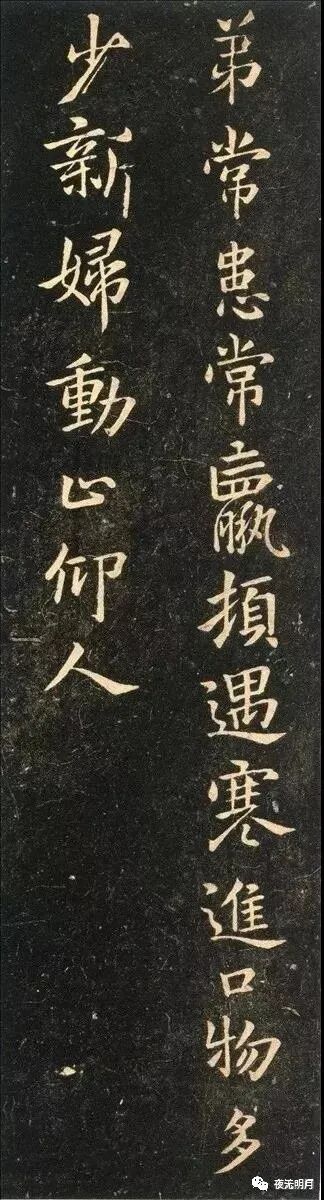 弟常患常羸頓遇寒進口物多
少新婦動止仰人
夜无明月